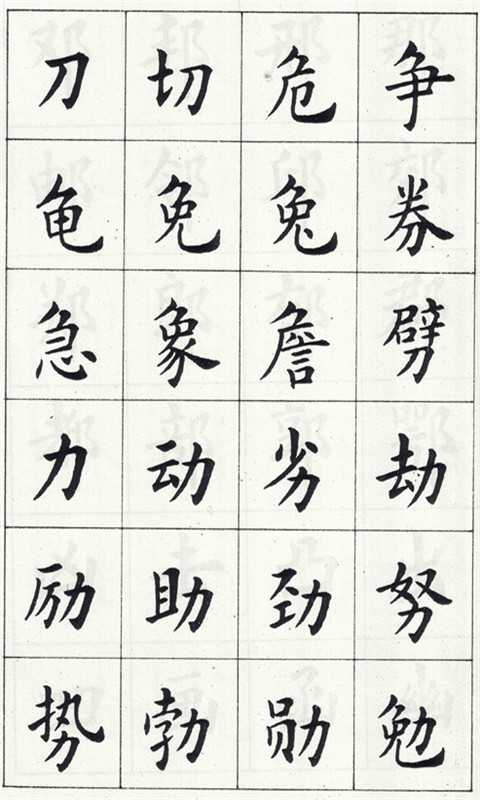 刀切危争
龟免兔券
急象詹劈
力动劣劫
励助劲努
势勃勋勉